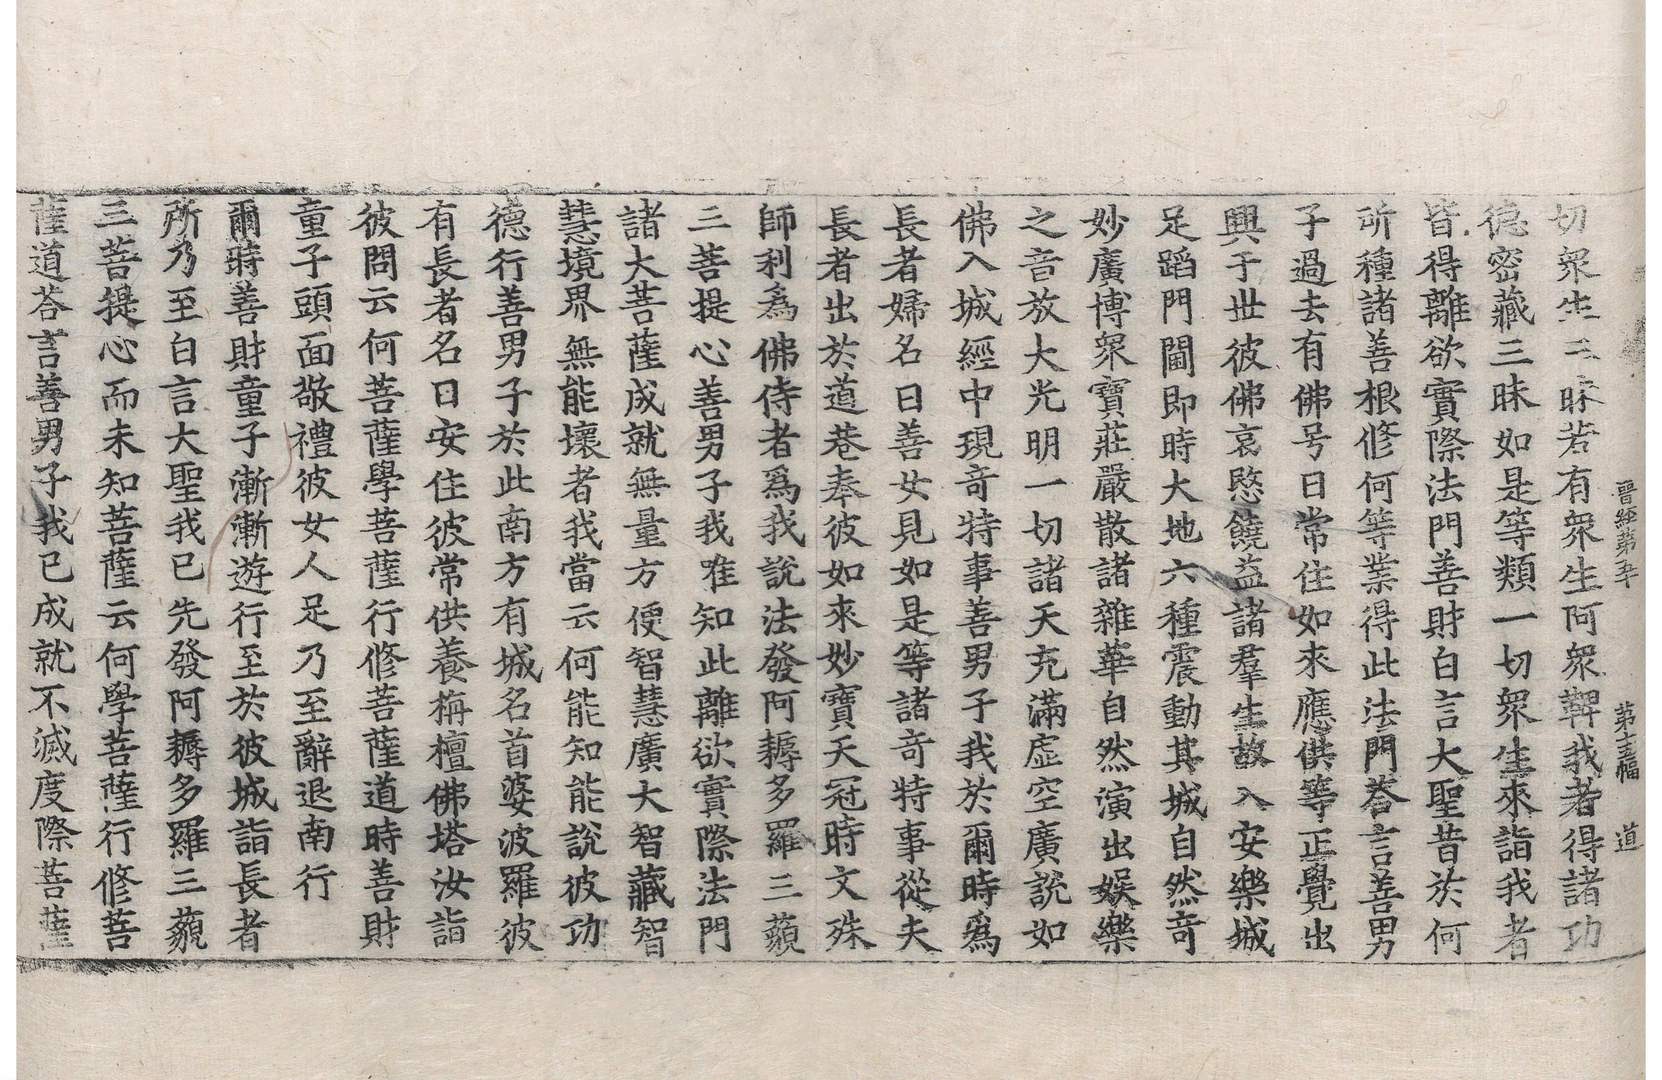 晉經第五十　第十三幅　道
切衆生三昧若有衆生阿衆鞞我者得諸功
德密藏三昧如是等類一切衆生來詣我者
皆得離欲實際法門善財白言大聖昔於何
所種諸善根修何等業得此法門荅言善男
子過去有佛号曰常住如來應供等正覺出
興于世彼佛哀愍饒益諸羣生故入安樂城
足蹈門閫即時大地六種震動其城自然奇
妙廣博衆寶莊嚴散諸雜華自然演出娛樂
之音放大光明一切諸天充滿虛空廣說如
佛入城經中現奇特事善男子我於爾時爲
長者婦名曰善女見如是等諸奇特事從夫
長者出於道巷奉彼如來妙寶天冠時文殊
師利爲佛侍者爲我說法發阿耨多羅三藐
三菩提心善男子我唯知此離欲實際法門
諸大菩薩成就無量方便智慧廣大智藏智
慧境界無能壞者我當云何能知能說彼功
德行善男子於此南方有城名首婆波羅彼
有長者名曰安住彼常供養栴檀佛塔汝詣
彼問云何菩薩學菩薩行修菩薩道時善財
童子頭面敬禮彼女人足乃至辭退南行
爾時善財童子漸漸遊行至於彼城詣長者
所乃至白言大聖我已先發阿耨多羅三藐
三菩提心而未知菩薩云何學菩薩行修菩
薩道荅言善男子我已成就不滅度際菩薩